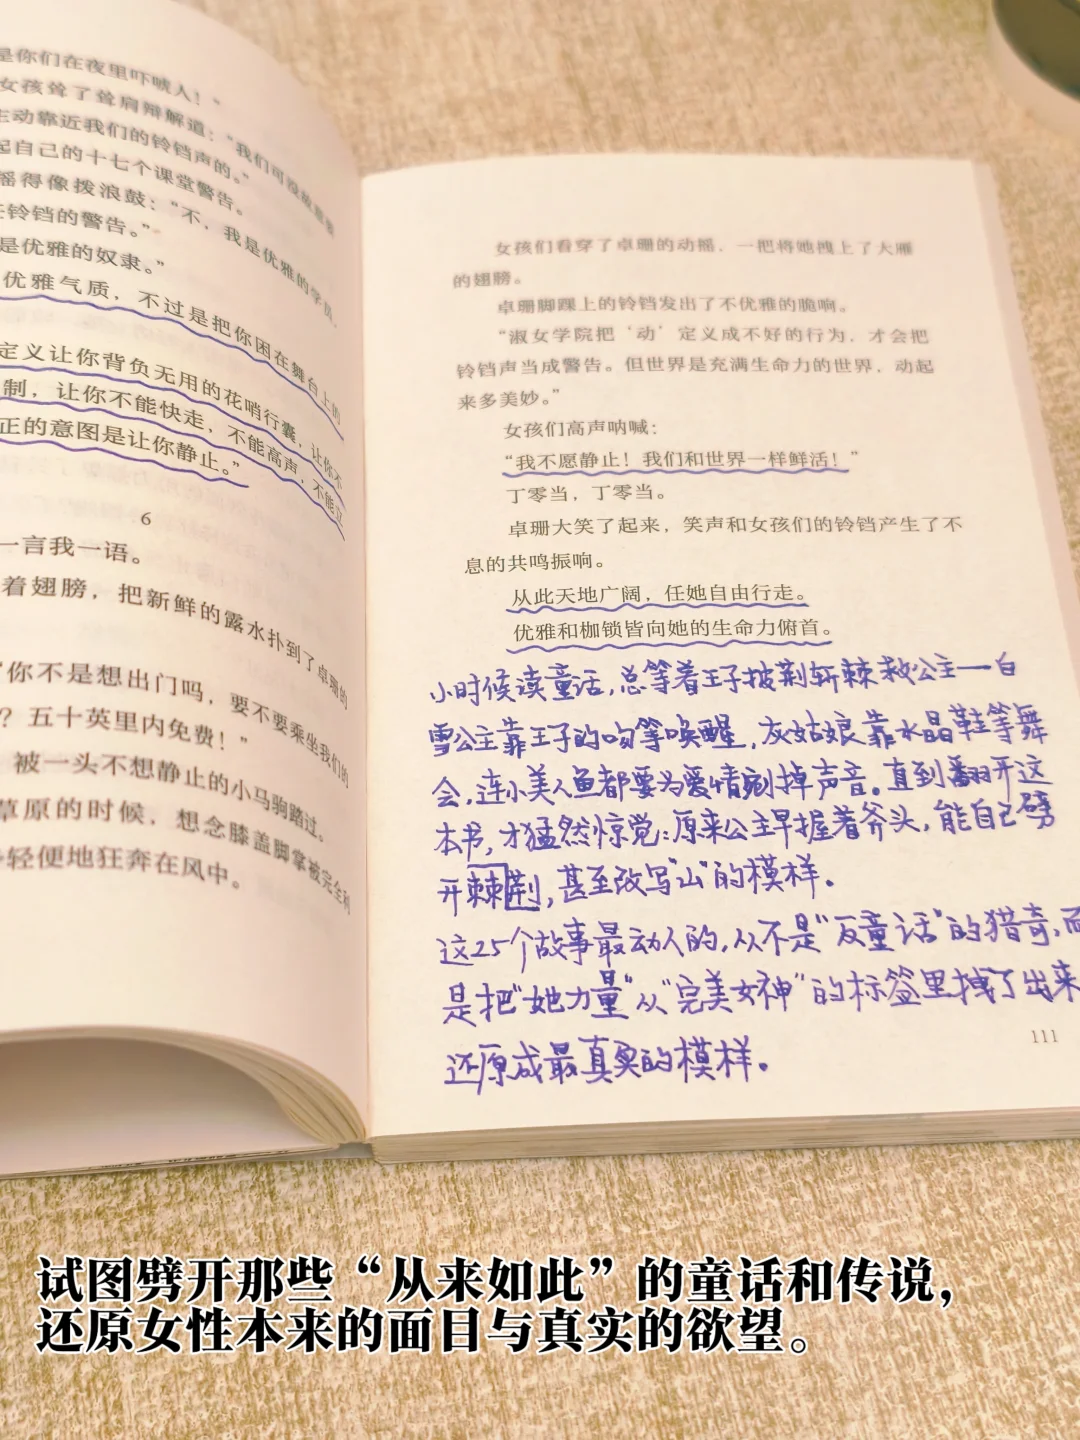 是你们在夜里吓唬人！”
女孩耸了耸肩辩解道：“我们可没故意靠
主动靠近我们的铃铛声的。”
起自己的十七个课堂警告。
摇得像拨浪鼓：“不，我是优雅的学员，
铃铛的警告。”
是优雅的奴隶。”
优雅气质，不过是把你困在舞台上的
定义让你背负无用的花哨行囊，让你不
制，让你不能快走，不能高声，不能立
正的意图是让你静止。”
6
一言我一语。
着翅膀，把新鲜的露水扑到了卓珊的
“你不是想出门吗，要不要乘坐我们的
？五十英里内免费！”
被一头不想静止的小马驹踏过。
草原的时候，想念膝盖脚掌被完全利
轻便地狂奔在风中。
女孩们看穿了卓珊的动摇，一把将她拽上了大雁
的翅膀。
卓珊脚踝上的铃铛发出了不优雅的脆响。
“淑女学院把‘动’定义成不好的行为，才会把
铃铛声当成警告。但世界是充满生命力的世界，动起
来多美妙。”
女孩们高声呐喊：
“我不愿静止！我们和世界一样鲜活！”
丁零当，丁零当。
卓珊大笑了起来，笑声和女孩们的铃铛产生了不
息的共鸣振响。
从此天地广阔，任她自由行走。
优雅和枷锁皆向她的生命力俯首。
小时候读童话，总等着王子披荆斩棘救公主一白
雪公主靠王子的吻等唤醒，灰姑娘靠水晶鞋等舞
会，连小美人鱼都要为爱情割掉声音。直到翻开这
本书，才猛然惊觉：原来公主早握着斧头，能自己劈
开棘荆，甚至改写“山”的模样。
这25个故事最动人的，从不是“反童话”的猎奇，而
是把“她力量”从“完美女神”的标签里拽了出来
还原成最真实的模样。
111
试图劈开那些“从来如此”的童话和传说，
还原女性本来的面目与真实的欲望。